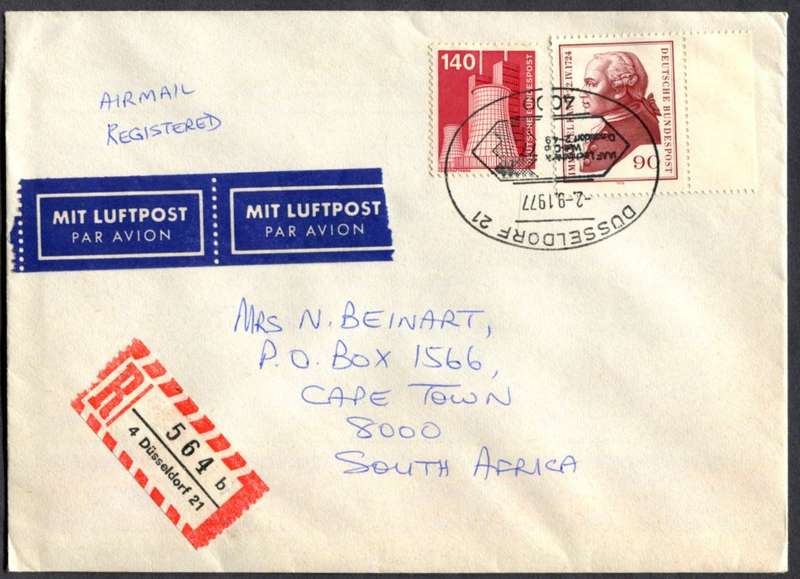 AIRMAIL
REGISTERED
140
DEUTSCHE BUNDESPOST
DEUTSCHE BUNDESPOST
90
4000
-2.-9.1977
DÜSSELDORF 21
MIT LUFTPOST
PAR AVION
MIT LUFTPOST
PAR AVION
MRS N. BEINART,
P.O. BOX 1566,
CAPE TOWN
8000
SOUTH AFRICA
R
564 b
4 Düsseldorf 21